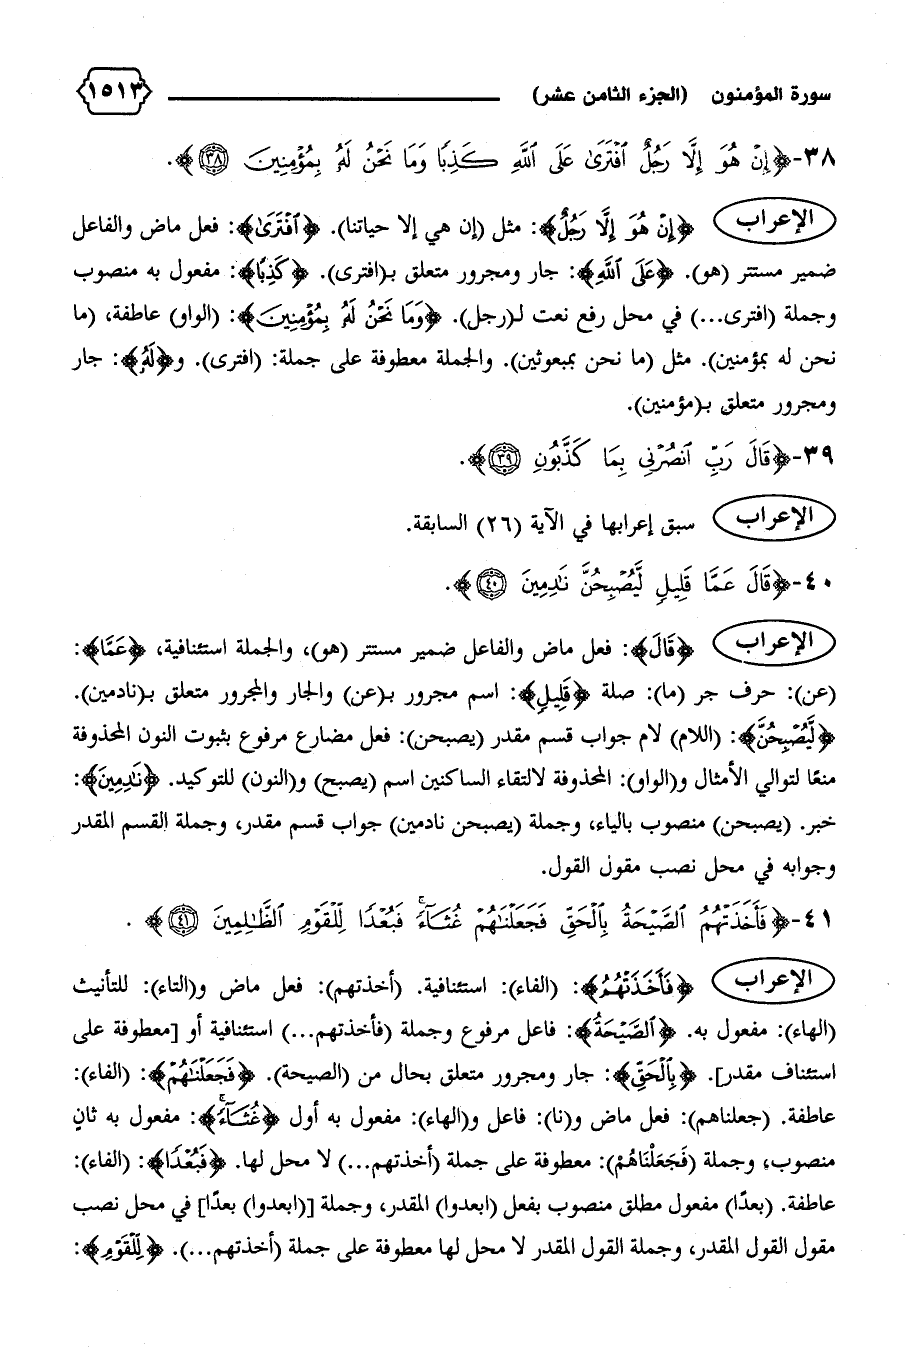 سورة المؤمنون (الجزء الثامن عشر) ١٥١٣
٣٨-﴿إِنْ هُوَ إِلَّا رَجُلٌ ٱفْتَرَىٰ عَلَى ٱللَّهِ كَذِبًا وَمَا نَحْنُ لَهُۥ بِمُؤْمِنِينَ ٣٨﴾.
الإعراب ﴿إِنْ هُوَ إِلَّا رَجُلٌ﴾: مثل (إن هي إلا حياتنا). ﴿ٱفْتَرَىٰ﴾: فعل ماض والفاعل
ضمير مستتر (هو). ﴿عَلَى ٱللَّهِ﴾: جار ومجرور متعلق بـ(افترى). ﴿كَذِبًا﴾: مفعول به منصوب
وجملة (افترى...) في محل رفع نعت لـ(رجل). ﴿وَمَا نَحْنُ لَهُۥ بِمُؤْمِنِينَ﴾: (الواو) عاطفة، (ما
نحن له بمؤمنين). مثل (ما نحن بمبعوثين). والجملة معطوفة على جملة: (افترى). و﴿لَهُۥ﴾: جار
ومجرور متعلق بـ(مؤمنين).
٣٩-﴿قَالَ رَبِّ ٱنصُرْنِى بِمَا كَذَّبُونِ ٣٩﴾.
الإعراب سبق إعرابها في الآية (٢٦) السابقة.
٤٠-﴿قَالَ عَمَّا قَلِيلٍ لَّيُصْبِحُنَّ نَـٰدِمِينَ ٤٠﴾.
الإعراب ﴿قَالَ﴾: فعل ماض والفاعل ضمير مستتر (هو)، والجملة استئنافية، ﴿عَمَّا﴾:
(عن): حرف جر (ما): صلة ﴿قَلِيلٍ﴾: اسم مجرور بـ(عن) والجار والمجرور متعلق بـ(نادمين).
﴿لَّيُصْبِحُنَّ﴾: (اللام) لام جواب قسم مقدر (يصبحن): فعل مضارع مرفوع بثبوت النون المحذوفة
منعًا لتوالي الأمثال و(الواو): المحذوفة لالتقاء الساكنين اسم (يصبح) و(النون) للتوكيد. ﴿نَـٰدِمِينَ﴾:
خبر. (يصبحن) منصوب بالياء، وجملة (يصبحن نادمين) جواب قسم مقدر، وجملة القسم المقدر
وجوابه في محل نصب مقول القول.
٤١-﴿فَأَخَذَتْهُمُ ٱلصَّيْحَةُ بِٱلْحَقِّ فَجَعَلْنَـٰهُمْ غُثَآءً ۚ فَبُعْدًا لِّلْقَوْمِ ٱلظَّـٰلِمِينَ ٤١﴾.
الإعراب ﴿فَأَخَذَتْهُمُ﴾: (الفاء): استئنافية. (أخذتهم): فعل ماض و(التاء): للتأنيث
(الهاء): مفعول به. ﴿ٱلصَّيْحَةُ﴾: فاعل مرفوع وجملة (فأخذتهم...) استئنافية أو [معطوفة على
استئناف مقدر]. ﴿بِٱلْحَقِّ﴾: جار ومجرور متعلق بحال من (الصيحة). ﴿فَجَعَلْنَـٰهُمْ﴾: (الفاء):
عاطفة. (جعلناهم): فعل ماض و(نا): فاعل و(الهاء): مفعول به أول ﴿غُثَآءً ۚ﴾: مفعول به ثانٍ
منصوب، وجملة (فَجَعَلْنَاهُمْ): معطوفة على جملة (أخذتهم...) لا محل لها. ﴿فَبُعْدًا﴾: (الفاء):
عاطفة. (بعدًا) مفعول مطلق منصوب بفعل (ابعدوا) المقدر، وجملة [(ابعدوا) بعدًا] في محل نصب
مقول القول المقدر، وجملة القول المقدر لا محل لها معطوفة على جملة (أخذتهم...). ﴿لِّلْقَوْمِ﴾: